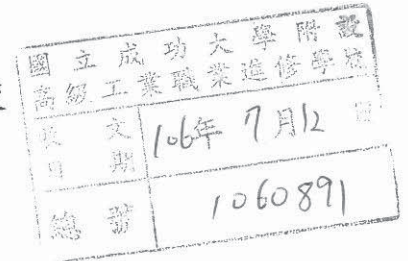 國立成功大學附設
高級工業職業進修學校
收文
日期
106年7月12日
總號
1060891